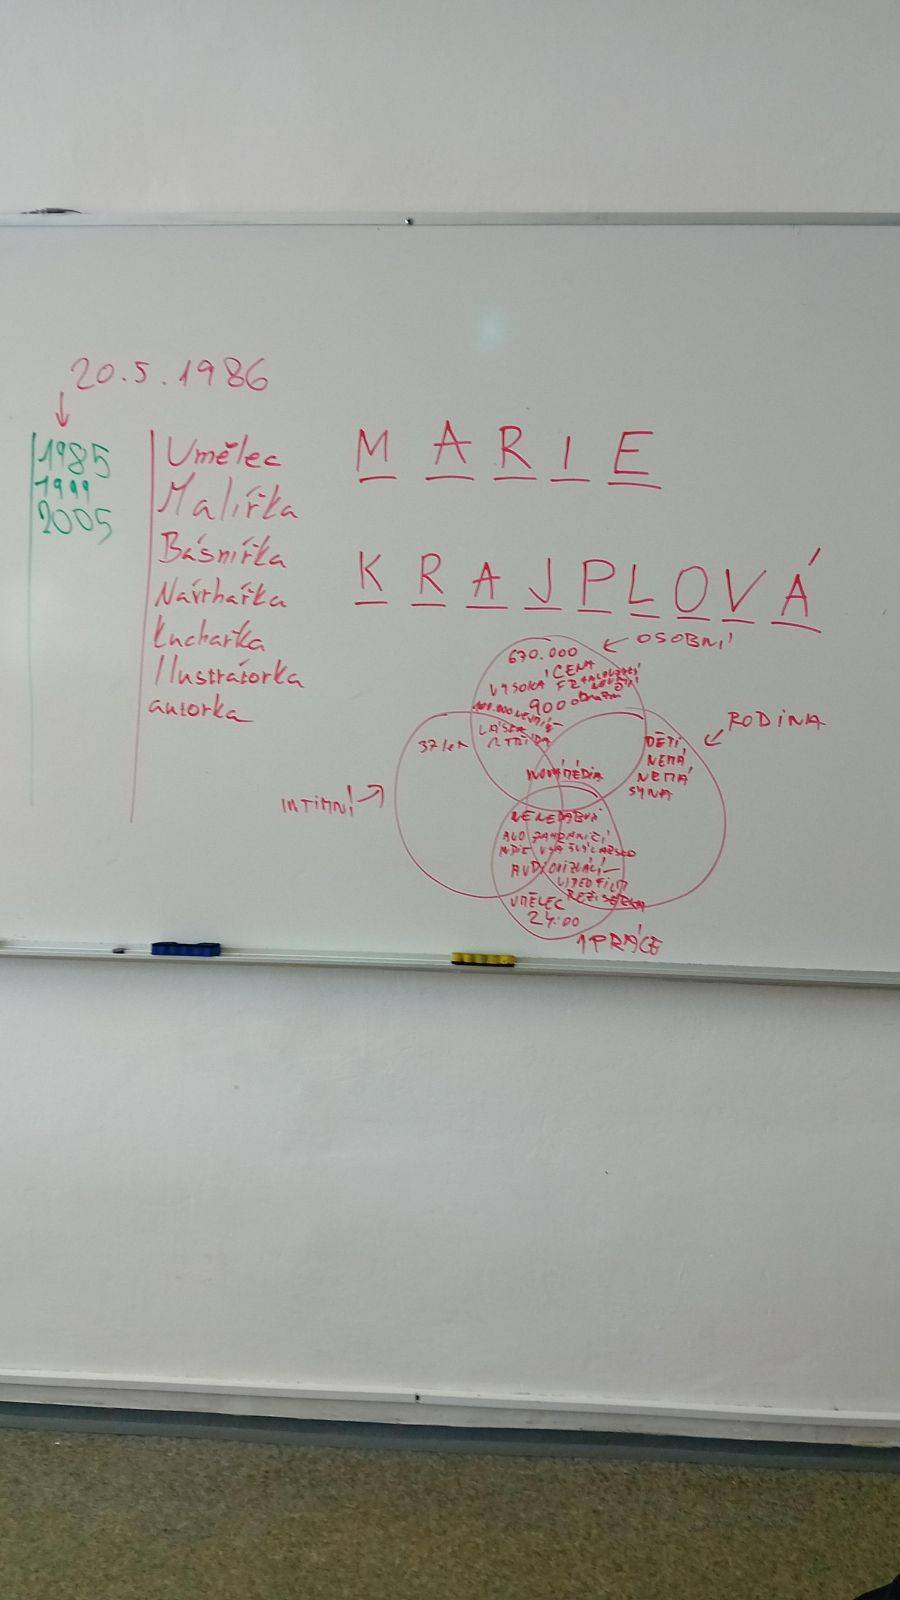 20.5.1986
1985
1999
2005
Umělec
Malířka
Básnířka
Návrhářka
kuchařka
Ilustrátorka
autorka
MARIE
KRAJPLOVÁ
OSOBNÍ
670.000
CENA
VYSOKÁ
9000
LÁSKA
37 let
RODINA
DĚTI
NEMÁ
NEMÁ
SYNA
NOVÁ MÉDIA
INTIMNÍ
AUDIOVIZUÁLÍ
VIDEO FILM
REŽISÉRKA
UMĚLEC
24:00
PRÁCE